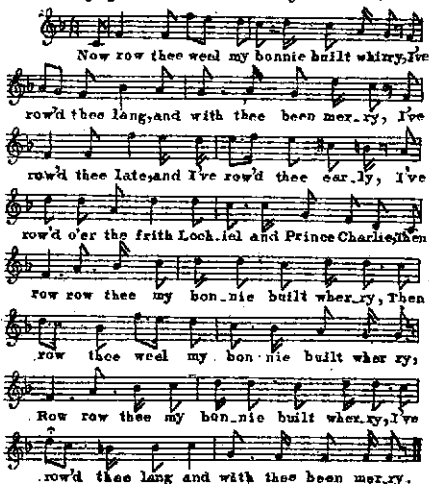 Now row thee weel my bonnie built whirry, I've
row'd thee lang, and with thee been mer_ry, I've
row'd thee late, and I've row'd thee ear_ly, I've
row'd o'er the frith Loch_iel and Prince Charlie, then
row row thee my bon_nie built wher_ry, Then
row thee weel my bon_nie built wher ry;
Row row thee my bon_nie built wher_ry, I've
row'd thee lang and with thee been mer_ry.